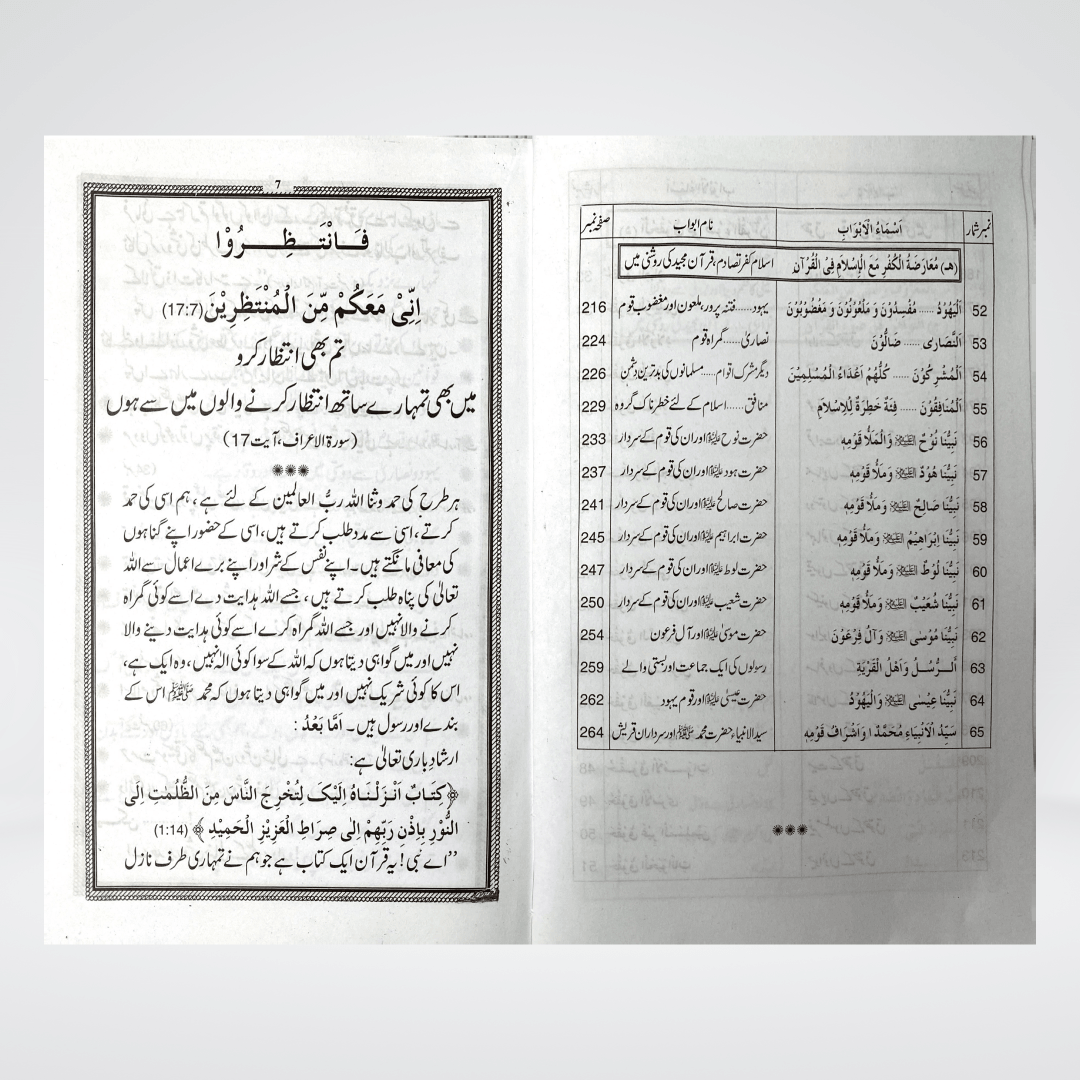 نمبر شمار اَسْمَاءُ الْاَبْوَابِ نام ابواب صفحہ نمبر
(هـ) مُعَارَضَةُ الْكُفْرِ مَعَ الْاِسْلَامِ فِی الْقُرْآنِ اسلام کفر تصادم، قرآن مجید کی روشنی میں
52 اَلْیَهُوْدُ ...... مُفْسِدُوْنَ وَ مَلْعُوْنُوْنَ وَ مَغْضُوْبُوْنَ یہود......فتنہ پرور، ملعون اور مغضوب قوم 216
53 اَلنَّصَارٰی ...... ضَالُّوْنَ نصاریٰ......گمراہ قوم 224
54 اَلْمُشْرِكُوْنَ ...... كُلُّهُمْ اَعْدَاءُ الْمُسْلِمِيْنَ دیگر مشرک اقوام.....مسلمانوں کی بدترین دشمن 226
55 اَلْمُنَافِقُوْنَ ...... فِئَةٌ خَطِرَةٌ لِلْاِسْلَامِ منافق......اسلام کے لئے خطرناک گروہ 229
56 نَبِيُّنَا نُوْحٌ وَالْمَلَأُ قَوْمِهِ حضرت نوح علیہ السلام اور ان کی قوم کے سردار 233
57 نَبِيُّنَا هُوْدٌ وَمَلَأُ قَوْمِهِ حضرت ہود علیہ السلام اور ان کی قوم کے سردار 237
58 نَبِيُّنَا صَالِحٌ وَمَلَأُ قَوْمِهِ حضرت صالح علیہ السلام اور ان کی قوم کے سردار 241
59 نَبِيُّنَا اِبْرَاهِيْمُ وَمَلَأُ قَوْمِهِ حضرت ابراہیم علیہ السلام اور ان کی قوم کے سردار 245
60 نَبِيُّنَا لُوْطٌ وَمَلَأُ قَوْمِهِ حضرت لوط علیہ السلام اور ان کی قوم کے سردار 247
61 نَبِيُّنَا شُعَيْبٌ وَمَلَأُ قَوْمِهِ حضرت شعیب علیہ السلام اور ان کی قوم کے سردار 250
62 نَبِيُّنَا مُوْسٰی وَآلُ فِرْعَوْنَ حضرت موسیٰ علیہ السلام اور آل فرعون 254
63 اَلرُّسُلُ وَاَهْلُ الْقَرْيَةِ رسولوں کی ایک جماعت اور بستی والے 259
64 نَبِيُّنَا عِيْسٰی وَالْيَهُوْدُ حضرت عیسیٰ علیہ السلام اور قوم یہود 262
65 سَيِّدُ الْاَنْبِيَاءِ مُحَمَّدٌ وَاَشْرَافُ قَوْمِهِ سید الانبیاء حضرت محمد ﷺ اور سرداران قریش 264
7
فَانْتَظِرُوْا
اِنِّیْ مَعَكُمْ مِّنَ الْمُنْتَظِرِيْنَ (17:7)
تم بھی انتظار کرو
میں بھی تمہارے ساتھ انتظار کرنے والوں میں سے ہوں
(سورۃ الاعراف، آیت 17)
ہر طرح کی حمد و ثنا اللہ ربُّ العالمین کے لئے ہے، ہم اسی کی حمد
کرتے، اسی سے مدد طلب کرتے ہیں، اسی کے حضور اپنے گناہوں
کی معافی مانگتے ہیں۔ اپنے نفس کے شر اور اپنے برے اعمال سے اللہ
تعالیٰ کی پناہ طلب کرتے ہیں، جسے اللہ ہدایت دے اسے کوئی گمراہ
کرنے والا نہیں اور جسے اللہ گمراہ کرے اسے کوئی ہدایت دینے والا
نہیں اور میں گواہی دیتا ہوں کہ اللہ کے سوا کوئی الٰہ نہیں، وہ ایک ہے،
اس کا کوئی شریک نہیں اور میں گواہی دیتا ہوں کہ محمد ﷺ اس کے
بندے اور رسول ہیں۔ اَمَّا بَعْدُ :
ارشاد باری تعالیٰ ہے:
﴿كِتَابٌ اَنْزَلْنَاهُ اِلَيْكَ لِتُخْرِجَ النَّاسَ مِنَ الظُّلُمٰتِ اِلَی
النُّوْرِ بِاِذْنِ رَبِّهِمْ اِلٰی صِرَاطِ الْعَزِيْزِ الْحَمِيْدِ﴾ (1:14)
”اے نبی! یہ قرآن ایک کتاب ہے جو ہم نے تمہاری طرف نازل